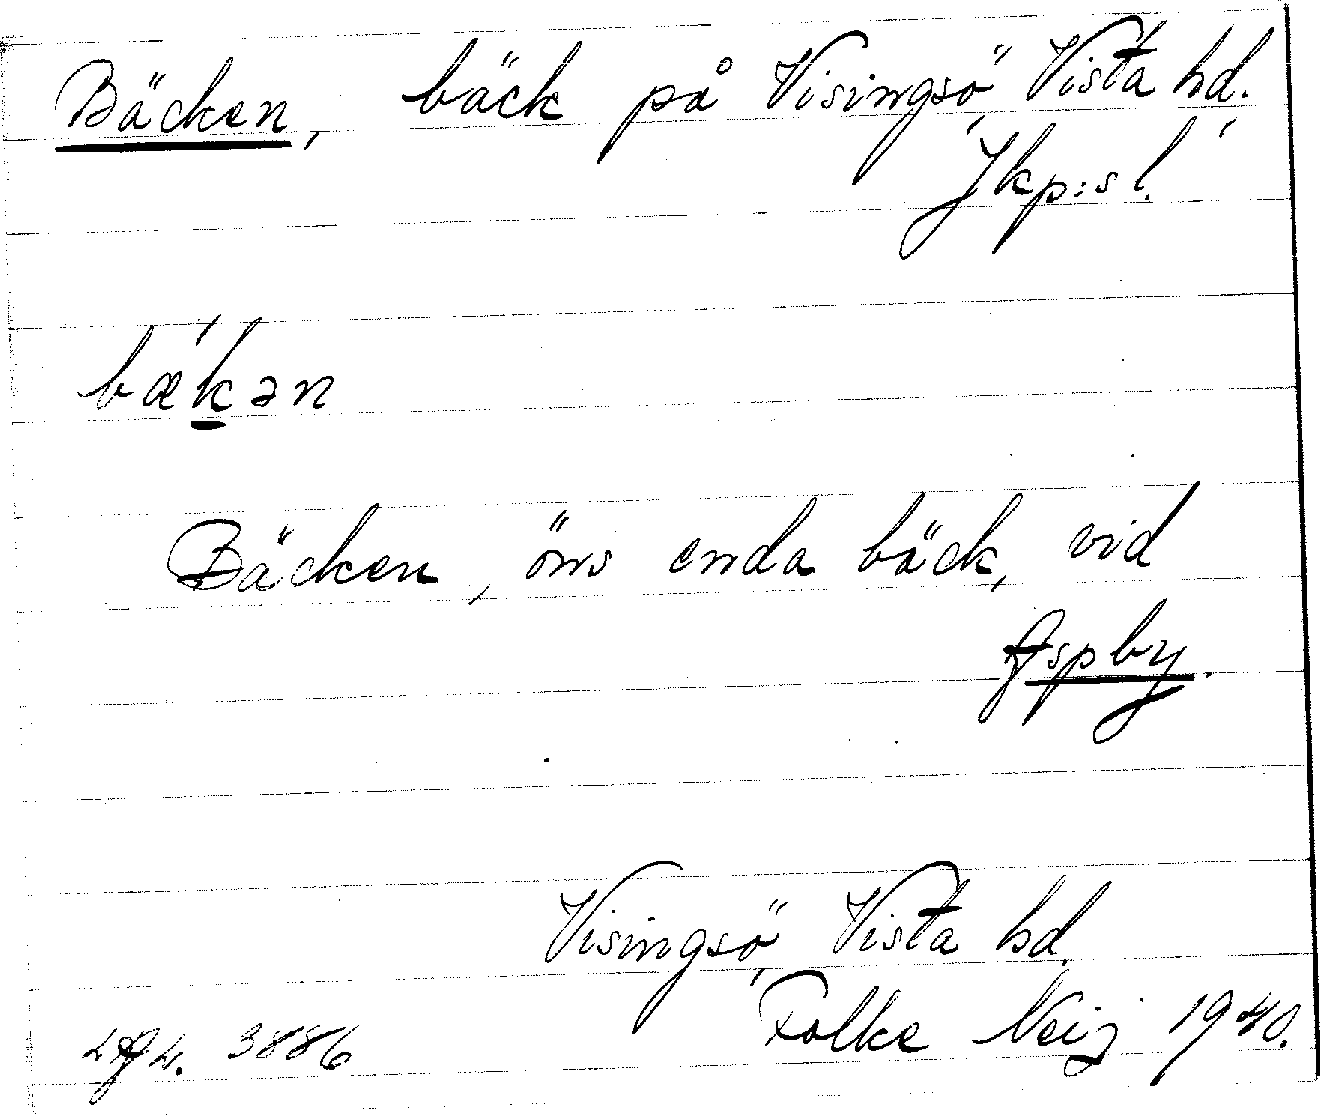 Bäcken, bäck på Visingsö, Vista hd.
Jkp:s l.
bæ´kən
Bäcken, öns enda bäck, vid
Aspby.
Visingsö, Vista hd.
Folke Neij 1940.
3886